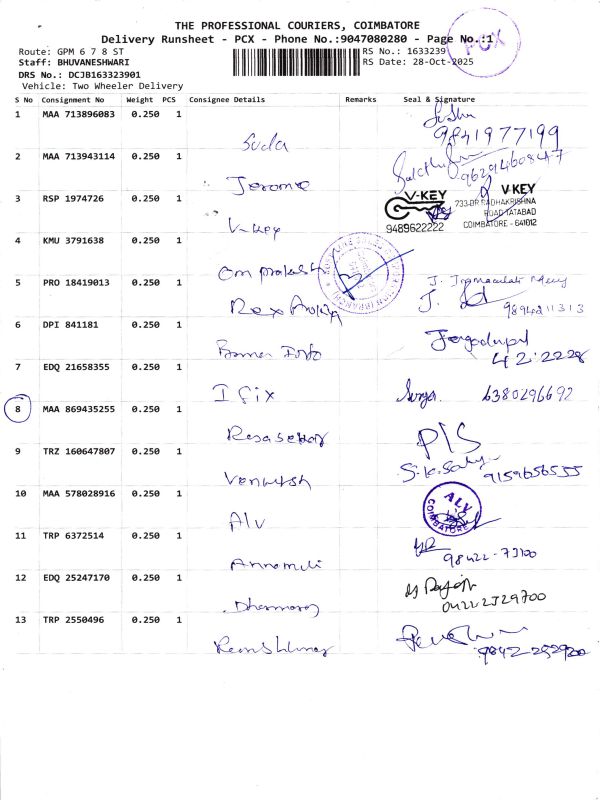 THE PROFESSIONAL COURIERS, COIMBATORE
Delivery Runsheet - PCX - Phone No.:9047080280 - Page No.:1
PCX
Route: GPM 6 7 8 ST
RS No.: 1633239
Staff: BHUVANESHWARI
RS Date: 28-Oct-2025
DRS No.: DCJB163323901
Vehicle: Two Wheeler Delivery
S No Consignment No Weight PCS Consignee Details Remarks Seal & Signature
1 MAA 713896083 0.250 1
Suda 9841977199
2 MAA 713943114 0.250 1
Jerome
3 RSP 1974726 0.250 1
V-Key
V-KEY
9489622222
V-KEY
733-DR RADHAKRISHNA
ROAD TATABAD
COIMBATORE - 641012
4 KMU 3791638 0.250 1
Om prakash
5 PRO 18419013 0.250 1
Rex
9894211313
6 DPI 841181 0.250 1
42:2228
7 EDQ 21658355 0.250 1
I fix Surya. 6380296692
8 MAA 869435255 0.250 1
9 TRZ 160647807 0.250 1
Venkatesh 9159656555
10 MAA 578028916 0.250 1
Alv
ALV
COIMBATORE
11 TRP 6372514 0.250 1
98422-73100
12 EDQ 25247170 0.250 1
0422 2529700
13 TRP 2550496 0.250 1
9842 252920